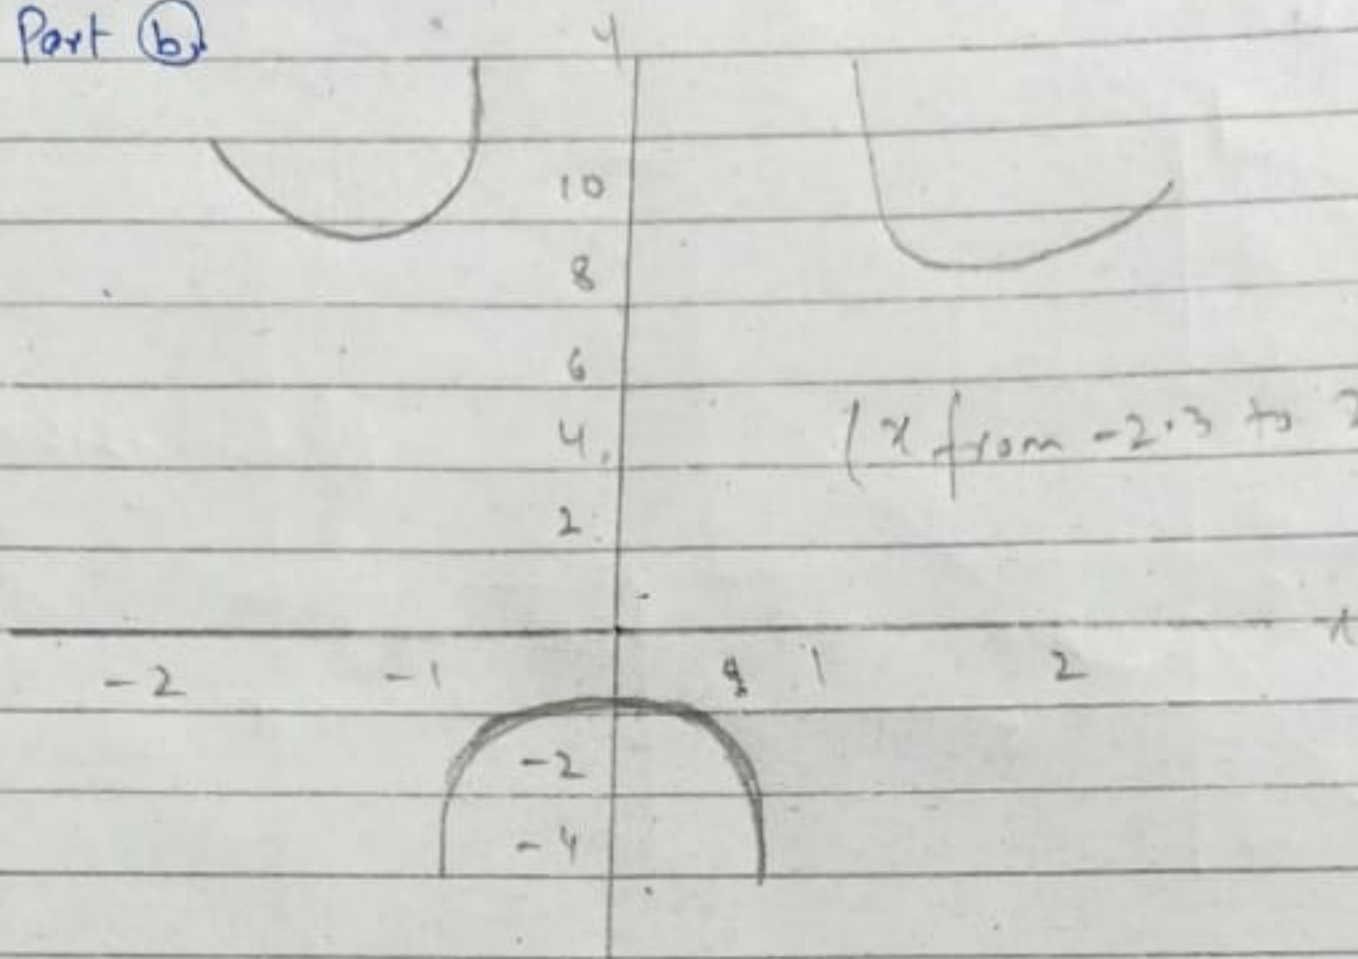 Part (b)
y
10
8
6
4
2
(x from -2.3 to 2
x
-2 -1 1 2
-2
-4